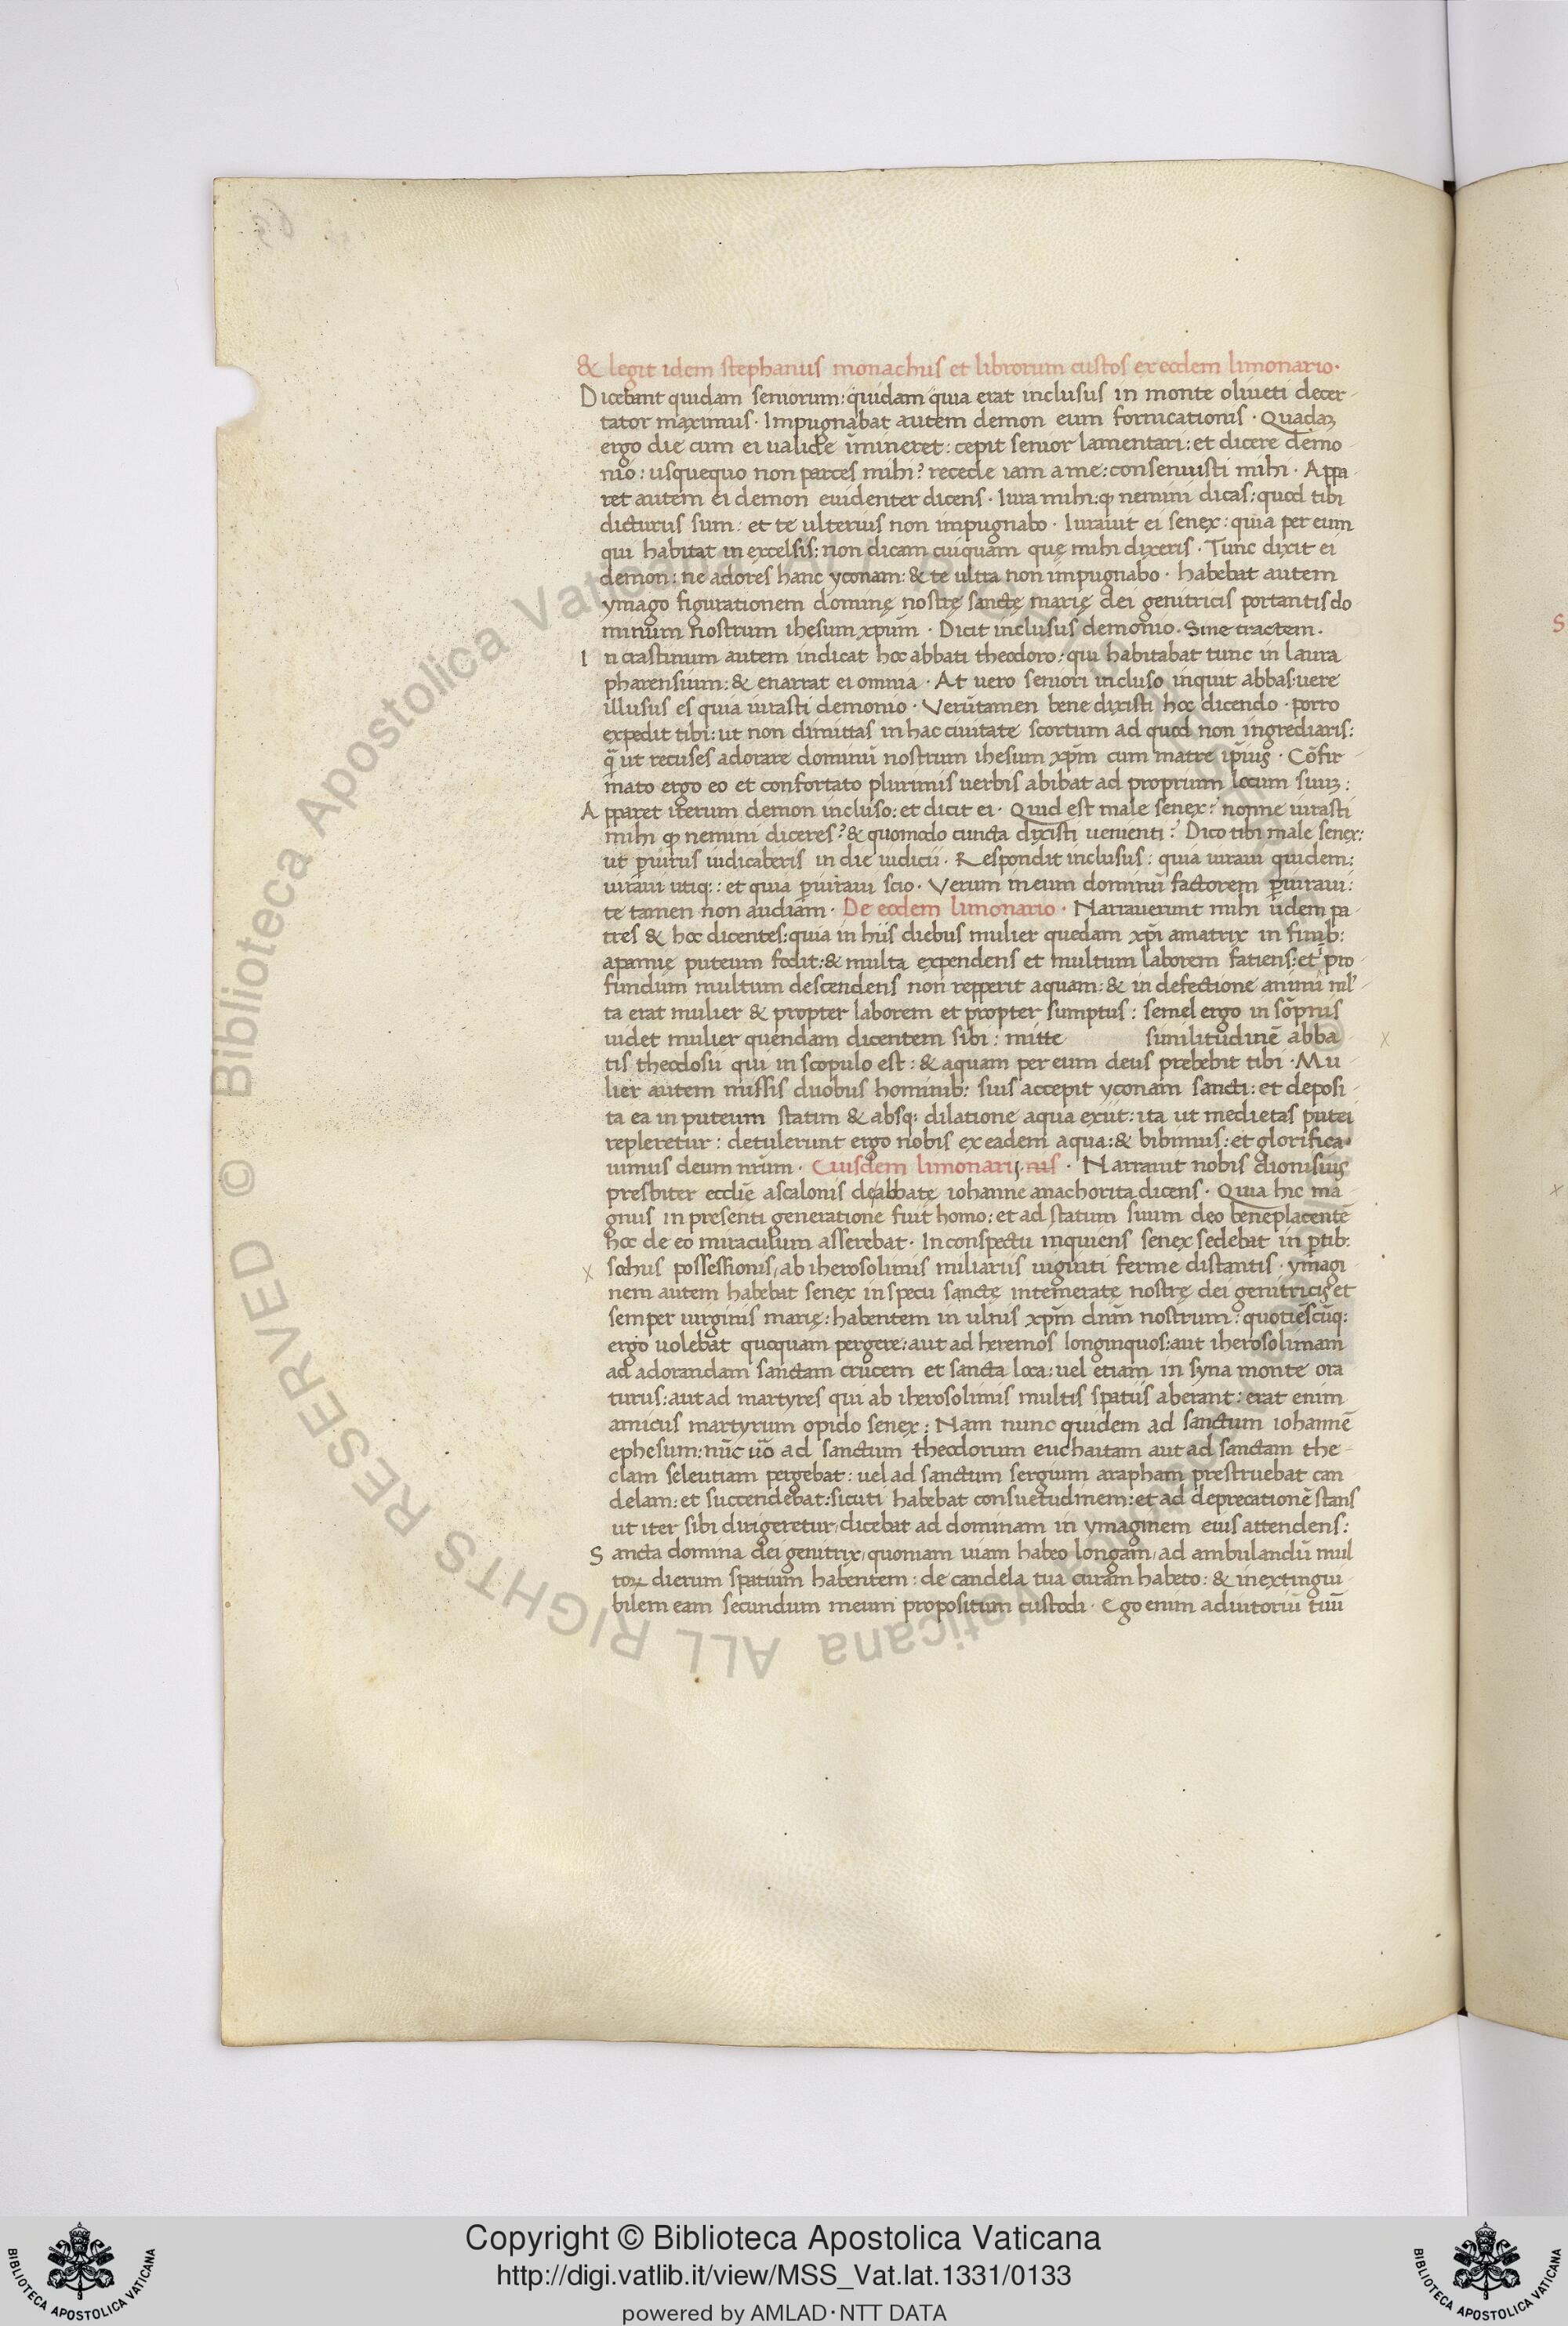 & legit idem stephanus monachus et librorum custos ex eodem limonario·
Dicebant quidam seniorum: quidam quia erat inclusus in monte oliueti decer-
tator maximus· Impugnabat autem demon eum fornicationis· Quadaʒ
ergo die cum ei ualide īmineret: cepit senior lamentari: et dicere demo-
nio: usquequo non parces mihi? recede iam a me: consenuisti mihi· Appa-
ret autem ei demon euidenter dicens· Iura mihi: ꝙ nemini dicas: quod tibi
dicturus sum: et te ulterius non impugnabo· Iurauit ei senex: quia per eum
qui habitat in excelsis: non dicam cuiquam quę mihi dixeris· Tunc dixit ei
demon: ne adores hanc yconam: & te ultra non impugnabo· habebat autem
ymago figurationem dominę nostrę sanctę marię dei genitricis portantis do
minum nostrum ihesum xp̄um· Dicit inclusus demonio· Sine tractem·
In crastinum autem indicat hoc abbati theodoro: qui habitabat tunc in laura
pharensium: & enarrat ei omnia· At uero seniori incluso inquit abbas: uere
illusus es quia iurasti demonio· Verūtamen bene dixisti hoc dicendo· porro
expedit tibi: ut non dimittas in hac ciuitate scortum ad quod non ingrediaris:
q̄ ut recuses adorare dominū nostrum ihesum xp̄m cum matre ip̄ius· Cōfir-
mato ergo eo et confortato plurimis uerbis abibat ad proprium locum suuʒ:
Apparet iterum demon incluso: et dicit ei· Quid est male senex? nonne iurasti
mihi ꝙ nemini diceres? & quomodo cuncta dixisti uenienti? Dico tibi male senex:
ut ꝑiurus iudicaberis in die iudicii· Respondit inclusus: quia iuraui quidem:
iuraui utiq: : et quia ꝑiuraui scio· Verum meum dominū factorem ꝑiuraui:
te tamen non audiam· De eodem limonario· Narrauerunt mihi iidem pa-
tres & hoc dicentes: quia in hiis diebus mulier quedam xp̄i amatrix in finib:
apamię puteum fodit: & multa expendens et multum laborem fatiens: et pro-
fundum multum descendens non repperit aquam: & in defectione animi mľ-
ta erat mulier & propter laborem et propter sumptus: semel ergo in sōpnis
uidet mulier quendam dicentem sibi: mitte similitudinē abba-
tis theodosii qui in scopulo est: & aquam per eum deus prebebit tibi· Mu
lier autem missis duobus hominib: suis accepit yconam sancti: et deposi-
ta ea in puteum statim & absq: dilatione aqua exiit: ita ut medietas putei
repleretur: detulerunt ergo nobis ex eadem aqua: & bibimus: et glorifica-
uimus deum nr̄um· Eiusdem limonarij· Narrauit nobis dionisius
presbiter ecclīe ascalonis de abbate iohanne anachorita dicens· Quia hic ma-
gnus in presenti generatione fuit homo: et ad statum suum deo beneplacentē
hoc de eo miraculum asserebat· In conspectu inquiens senex sedebat in ꝑtib:
sochus possessionis, ab iherosolimis miliariis uiginti ferme distantis· ymagi
nem autem habebat senex in specu sanctę intemeratę nostrę dei genitricis et
semper uirginis marię: habentem in ulnis xp̄m dn̄m nostrum: quotiēscūq:
ergo uolebat quoquam pergere: aut ad heremos longinquos: aut iherosolimam
ad adorandam sanctam crucem et sancta loca: uel etiam in syna monte ora
turus: aut ad martyres qui ab iherosolimis multis spatiis aberant: erat enim
amicus martyrum opido senex: Nam nunc quidem ad sanctum iohannē
ephesum: nūc uō ad sanctum theodorum euchaitam aut ad sanctam the-
clam seleutiam pergebat: uel ad sanctum sergium arapham prestruebat can
delam: et succendebat: sicuti habebat consuetudinem: et ad deprecationē stans
ut iter sibi dirigeretur, dicebat ad dominam in ymaginem eius attendens:
Sancta domina dei genitrix, quoniam uiam habeo longam, ad ambulandū mul
toꝝ dierum spatium habentem: de candela tua curam habeto: & inextingui-
bilem eam secundum meum propositum custodi· Ego enim adiutoriū tuū
© Biblioteca Apostolica Vaticana ALL RIGHTS RESERVED
Copyright © Biblioteca Apostolica Vaticana
http://digi.vatlib.it/view/MSS_Vat.lat.1331/0133
powered by AMLAD·NTT DATA
BIBLIOTECA APOSTOLICA VATICANA
BIBLIOTECA APOSTOLICA VATICANA